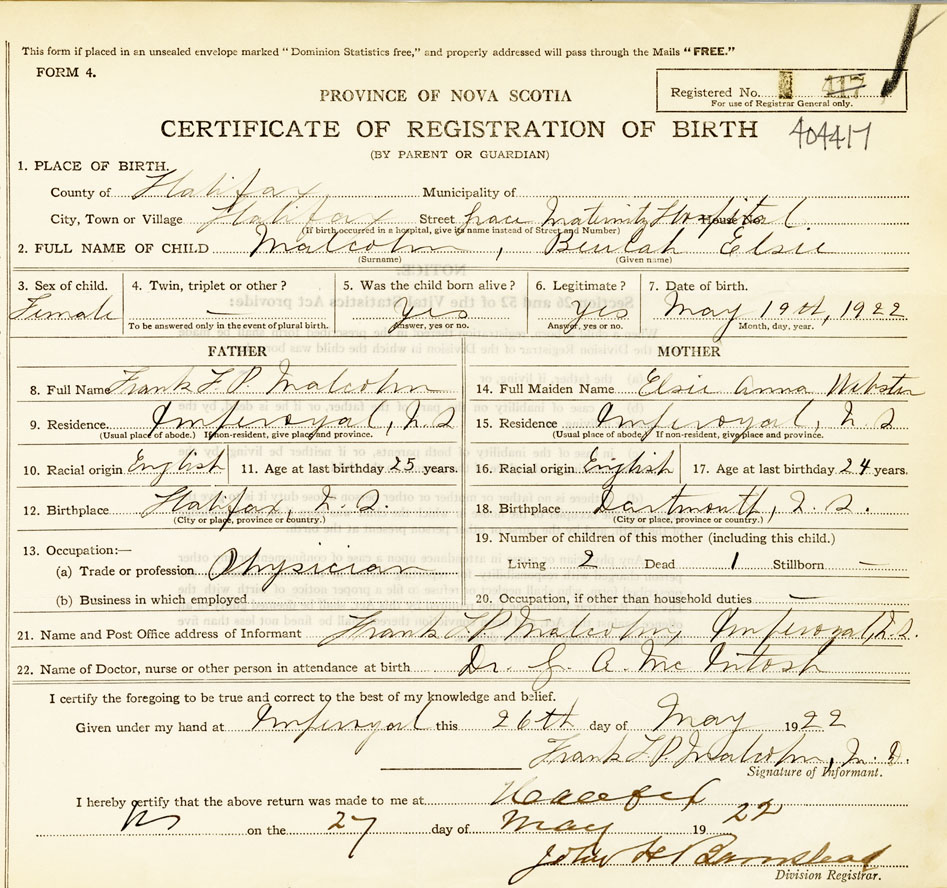 This form if placed in an unsealed envelope marked "Dominion Statistics free," and properly addressed will pass through the Mails "FREE."
FORM 4.
Registered No. 417
For use of Registrar General only.
PROVINCE OF NOVA SCOTIA
CERTIFICATE OF REGISTRATION OF BIRTH 404417
(BY PARENT OR GUARDIAN)
1. PLACE OF BIRTH.
County of Halifax Municipality of
City, Town or Village Halifax Street Grace Maternity Hospital House No.
(If birth occurred in a hospital, give its name instead of Street and Number)
2. FULL NAME OF CHILD Malcolm, Beulah Elsie
(Surname) (Given name)
3. Sex of child. 4. Twin, triplet or other? 5. Was the child born alive? 6. Legitimate? 7. Date of birth.
Female — Yes Yes May 19th, 1922
To be answered only in the event of plural birth. Answer, yes or no. Answer, yes or no. Month, day, year.
FATHER MOTHER
8. Full Name Frank F. P. Malcolm 14. Full Maiden Name Elsie Anna Webster
9. Residence Imperoyal, N.S 15. Residence Imperoyal, N S
(Usual place of abode.) If non-resident, give place and province. (Usual place of abode.) If non-resident, give place and province.
10. Racial origin English 11. Age at last birthday 25 years. 16. Racial origin English 17. Age at last birthday 24 years.
12. Birthplace Halifax, N. S. 18. Birthplace Dartmouth, N. S.
(City or place, province or country.) (City or place, province or country.)
13. Occupation:— 19. Number of children of this mother (including this child.)
(a) Trade or profession Physician Living 2 Dead 1 Stillborn —
(b) Business in which employed 20. Occupation, if other than household duties —
21. Name and Post Office address of Informant Frank F. P. Malcolm, Imperoyal, N.S.
22. Name of Doctor, nurse or other person in attendance at birth Dr. G. A. Mc Intosh
I certify the foregoing to be true and correct to the best of my knowledge and belief.
Given under my hand at Imperoyal this 26th day of May 1922
Frank F. P. Malcolm, M. D.
Signature of Informant.
I hereby certify that the above return was made to me at Halifax
NS on the 27 day of May 1922
John H Barnstead
Division Registrar.